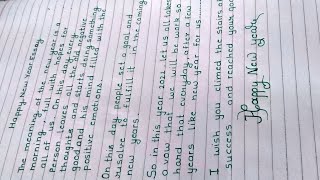 Happy New Year Essay
The meaning of the new year is a
morning of fun with new hopes for
all of us. On this day every
person leaves all day negative
thoughts and starts doing something
good and his mind filling with the
positive emotions.
On this day people set a goal and
resolve to fulfill it in the coming
new years.
So in this year 2021 let us all take
a vow that we will be work so
hard that everyday after a few
years like new year for us
I wish you climed the stairs of
success and reached your goal
Happy New year